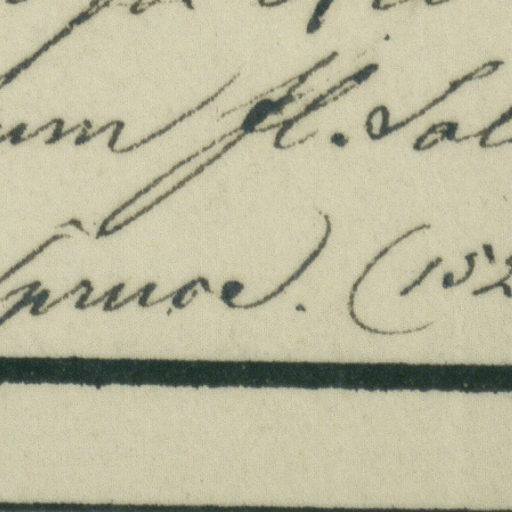 um fl. Sal
Spruce). (152